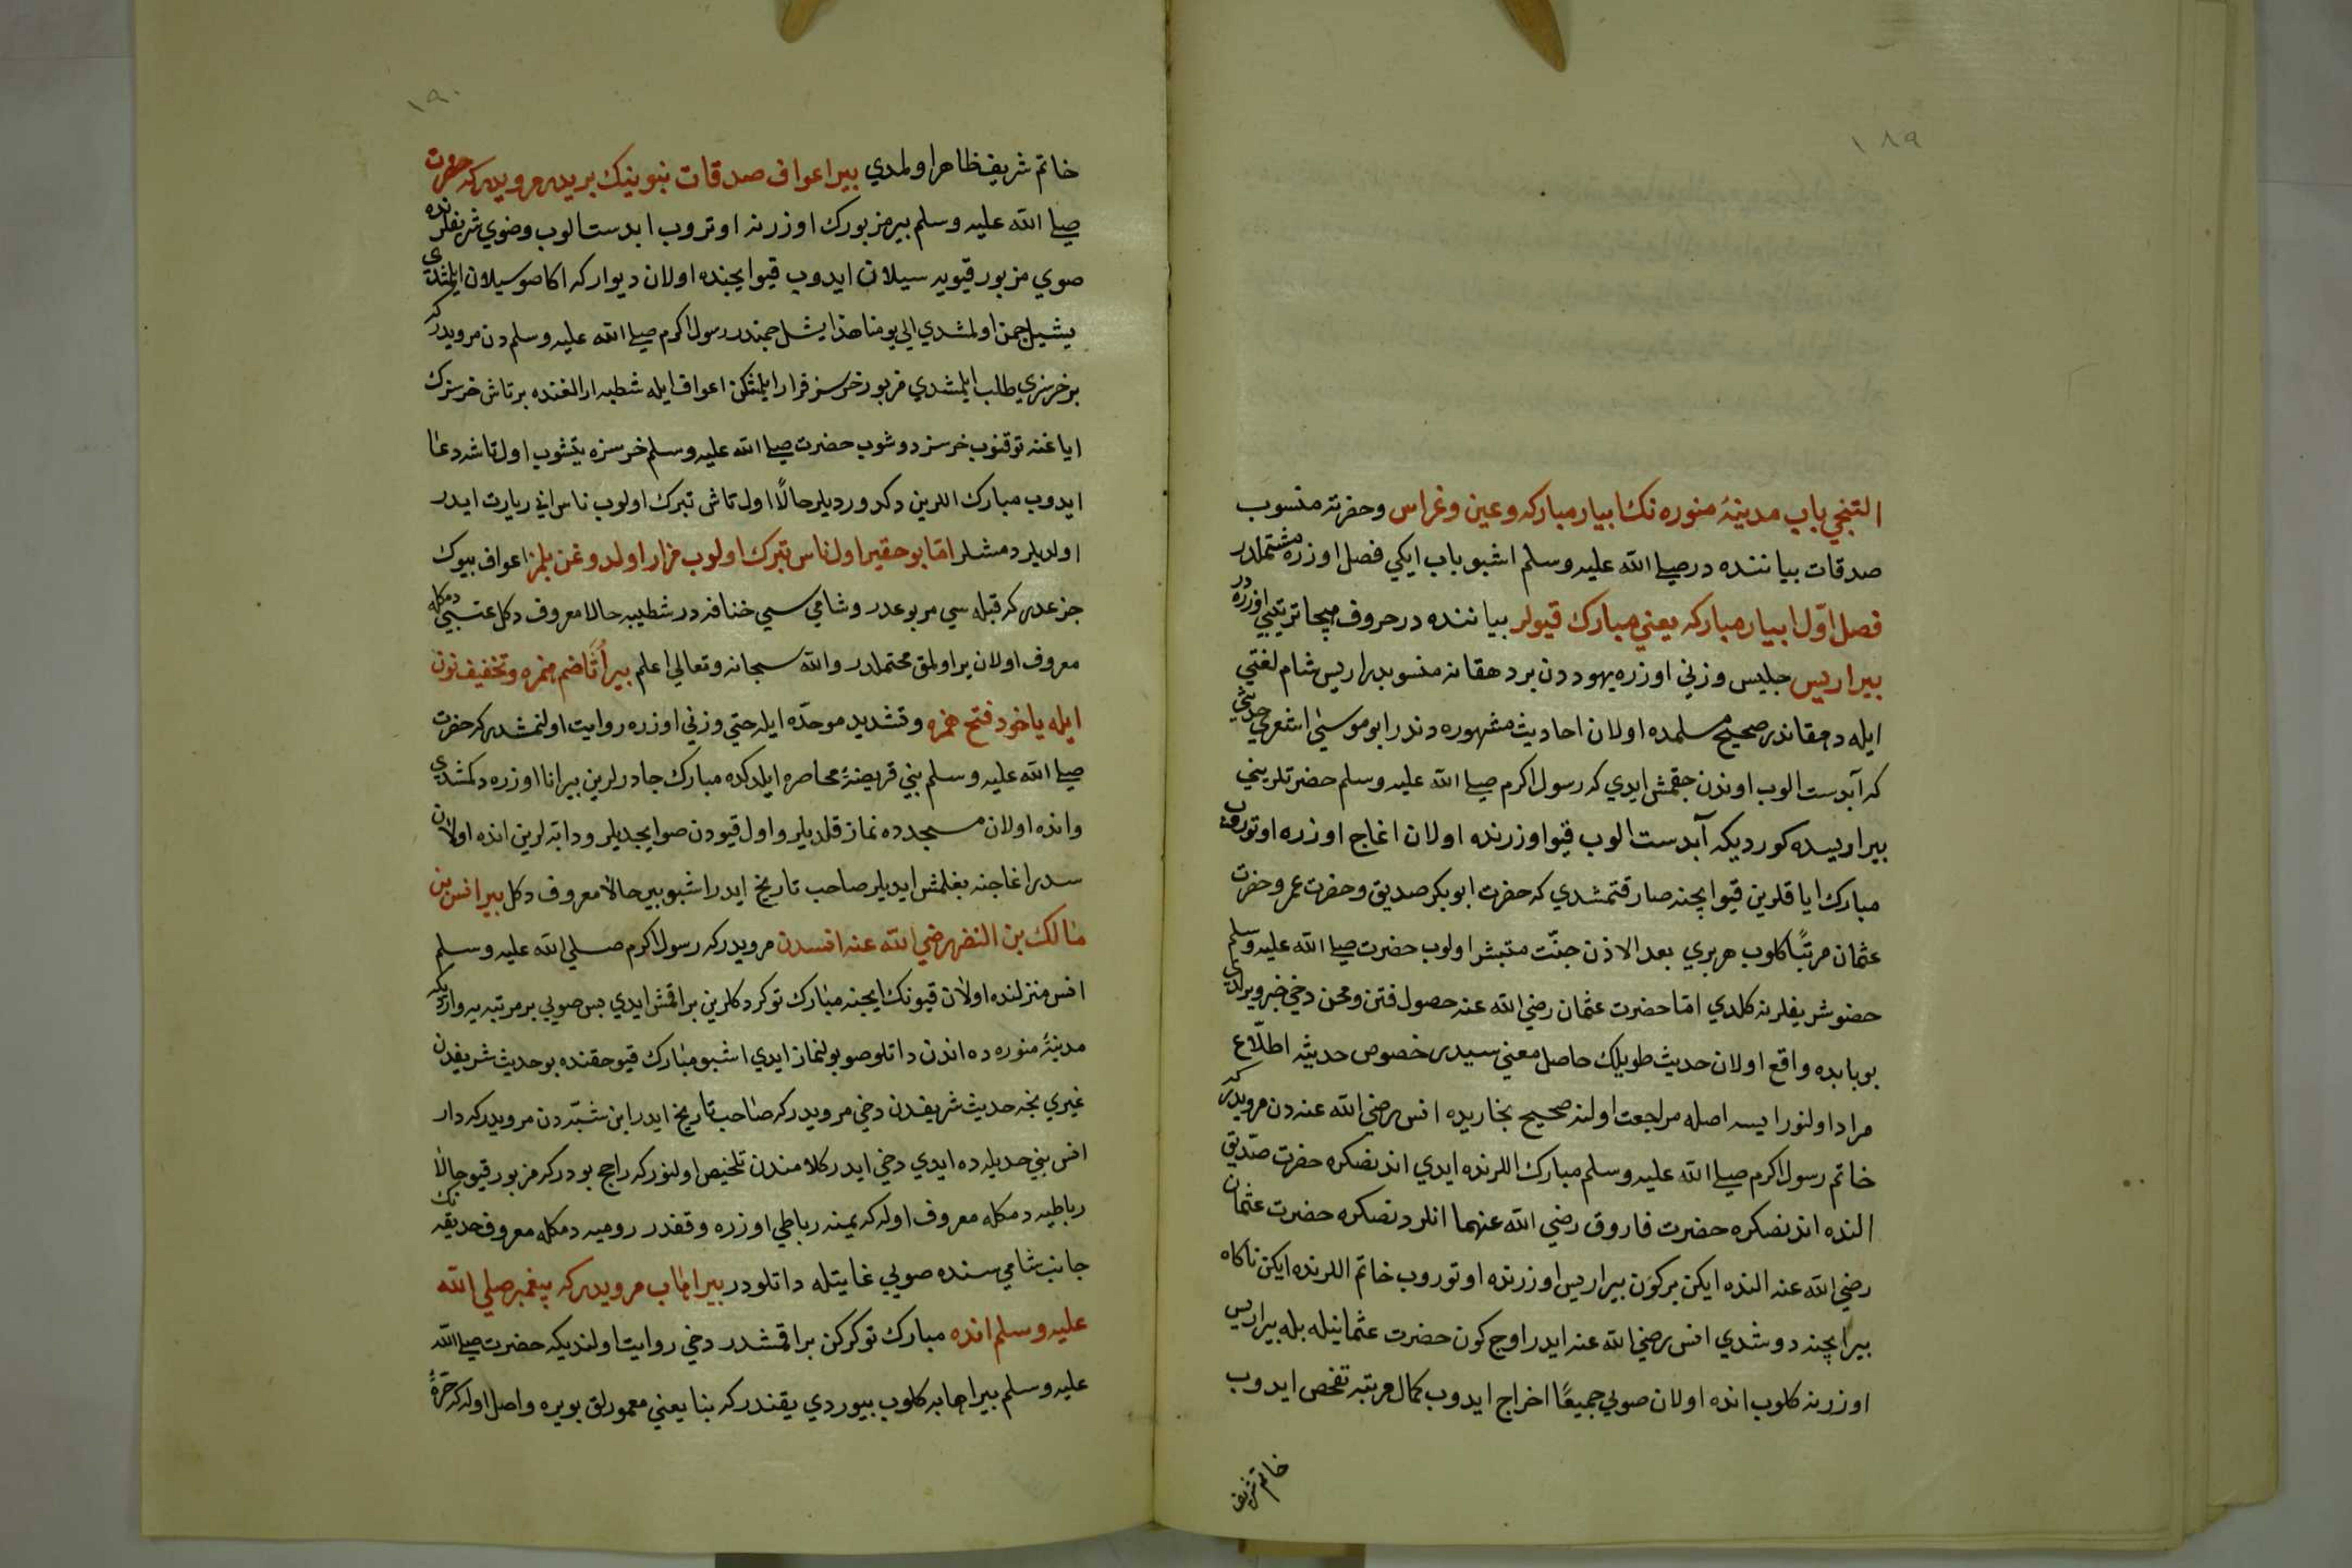 ١٨٩
التنجي باب مدينهٔ منوره نك ابيار مباركه وعين وغراس وحضرته منسوب
صدقات بياننده در صلى الله عليه وسلم اشبو باب ايكي فصل اوزره مشتملدر
فصل اوّل ابيار مباركه يعني مبارك قيولر بياننده در حروف هجا ترتيبي اوزره در
بير اريس جليس وزني اوزره يهوددن بر دهقانه منسوبدر اريس شام لغتي
ايله دهقاندر صحيح مسلمده اولان احاديث مشهوره دندر ابو موسى اشعري حديثي
كه آبدست الوب اوندن چقمش ايدي كه رسول اكرم صلى الله عليه وسلم حضرتلريني
بير اريسده كورديكه آبدست الوب قيو اوزرنده اولان اغاج اوزره اوتوروب
مبارك اياقلرين قيو ايچنه صارقتمشدي كه حضرت ابوبكر صديق وحضرت عمر وحضرت
عثمان مرتبًا كلوب هر بري بعد الاذن جنّت متبشر اولوب حضرت صلى الله عليه وسلم
حضو شريفلرنه كلدي امّا حضرت عثمان رضي الله عنه حصول فتن ومحن دخي خبر ويرلدي
بو بابده واقع اولان حديث طويلك حاصل معني سيدر خصوص حديثه اطلّاع
مراد اولنور ايسه اصله مراجعت اولنه صحيح بخاريده انس رضي الله عنه دن مرويدركه
خاتم رسول اكرم صلى الله عليه وسلم مبارك اللرنده ايدي اندنصكره حضرت صدّيق
النده اندنصكره حضرت فاروق رضي الله عنهما انلردنصكره حضرت عثمان
رضي الله عنه النده ايكن بر كون بير اريس اوزرنده اوتوروب خاتم اللرنده ايكن ناكاه
بير ايچنه دوشدي انس رضي الله عنه ايدر اوچ كون حضرت عثمانيله بله بير اريس
اوزرنه كلوب انده اولان صويي جميعًا اخراج ايدوب كمال مرتبه تفحص ايدوب
خاتم شريف
١٩٠
خاتم شريف ظاهر اولمدي بير اعواف صدقات نبوينك بريدر مرويدركه حضرت
صلى الله عليه وسلم بير مزبورك اوزرنه اوتروب ابدست الوب وضوي شريفلرنده
صوي مزبور قيويه سيلان ايدوب قيو ايچنده اولان ديواركه اكا صو سيلان ايلمشدي
يشيل چمن اولمشدي الي يومنا هذا يشل چمندر رسول اكرم صلى الله عليه وسلم دن مرويدركه
بر خرسزي طلب ايلمشدي مزبور خرسز فرار ايلمشكن اعواف ايله شطبه ارالغنده بر تاش خرسزك
اياغنه توقنوب خرسز دوشوب حضرت صلى الله عليه وسلم خرسزه يتشوب اول تاشه دعا
ايدوب مبارك اللرين دكدورديلر حالًا اول تاش تبرك اولوب ناس اني زيارت ايدر
اولديلر دمشلر امّا بو حقير اول ناس تبرك اولوب مزار اولدوغن بلمز اعواف بيوك
جزعدر كه قبله سي مربوعدر وشامي سي خنافه در شطيبه حالا معروف دكل عتبي دمكله
معروف اولان ير اولمق محتملدر والله سبحانه وتعالي اعلم بير أنّا ضم همزه وتخفيف نون
ايله ياخود فتح همزه وتشديد موحده ايله حتي وزني اوزره روايت اولنمشدركه حضرت
صلى الله عليه وسلم بني قريضهٔ محاصره ايلدكده مبارك چادرلرين بير انا اوزره دكمشدي
وانده اولان مسجدده نماز قلديلر واول قيودن صو ايچديلر ودابه لرين انده اولان
سدر اغاجنه بغلمش ايديلر صاحب تاريخ ايدر اشبو بير حالا معروف دكل بير انس بن
مالك بن النضر رضي الله عنه انسدن مرويدركه رسول اكرم صلى الله عليه وسلم
انس منزلنده اولان قيونك ايچنه مبارك توكركلرين براقمش ايدي پس صويي بر مرتبه يه وارديكه
مدينهٔ منوره ده اندن داتلو صو بولنماز ايدي اشبو مبارك قيو حقنده بو حديث شريفدن
غيري نجه حديث شريفدن دخي مرويدركه صاحب تاريخ ايدر ابن شبّه دن مرويدركه دار
انس بني حديله ده ايدي دخي ايدر كلامندن تلخيص اولنوركه راجح بودركه مزبور قيو حالا
رباطيه دمكله معروف اوله كه يمنه رباطي اوزره وقفدر روميه دمكله معروف حديقه نك
جانب شامي سنده صويي غايتله داتلودر بير اهاب مرويدركه پيغمبر صلي الله
عليه وسلم انده مبارك توكركن براقمشدر دخي روايت اولنديكه حضرت صلى الله
عليه وسلم بير اهابه كلوب بيوردي يقندركه بنا يعني معمورلق بويره واصل اوله كه حرهٔ